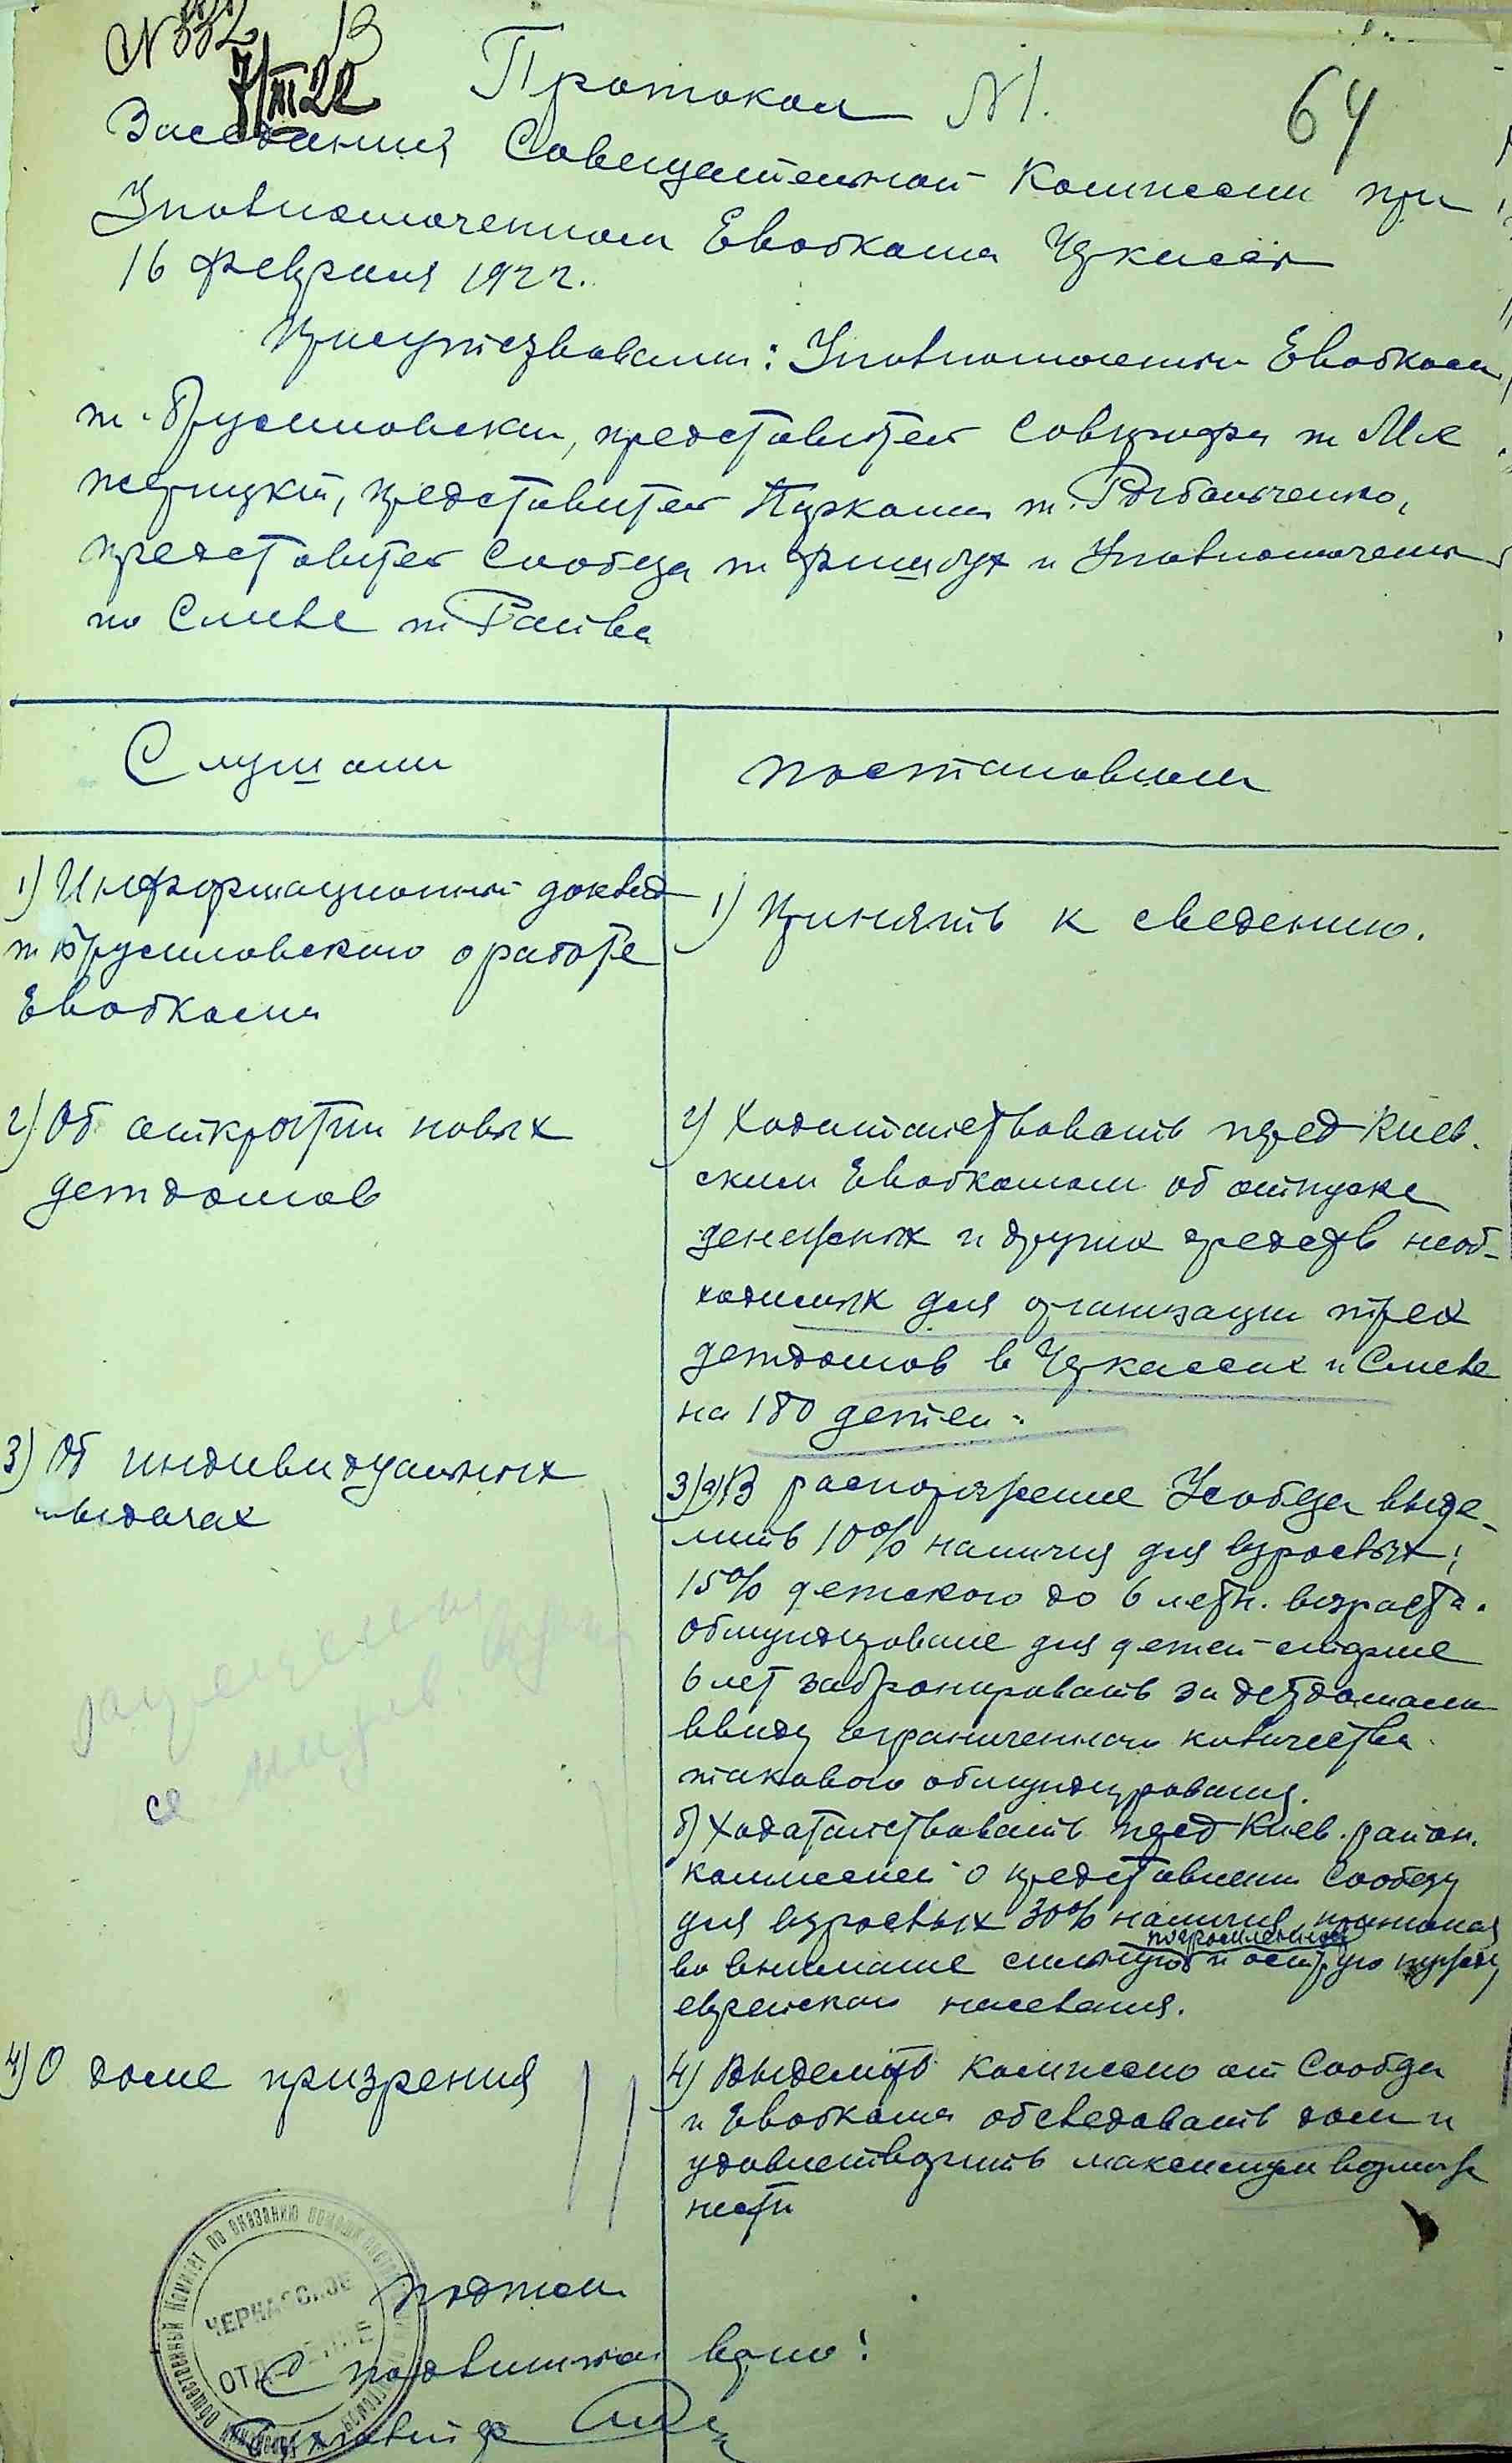 N 332
7/III 22
Протокол N1.
64
Заседания Совещательной Комиссии при
Уполномоченном Евобкома Черкассы
16 февраля 1922.
Присутствовали: Уполномоченный Евобкома
т. Брусиловский, представитель Совпрофа т Ме
жерицкий, представитель Паркома т. Рыбальченко,
представитель Собеза т и Уполномоченный
по Смеле т
Слушали
Постановили
1) Информационный доклад
т Брусиловского о работе
Евобкома
1) Принять к сведению.
2) Об открытии новых
детдомов
2) Ходатайствовать перед Киев-
ским Евобкомом об отпуске
денежных и других средств необ-
ходимых для организации трех
детдомов в Черкассах и Смеле
на 180 детей.
3) Об индивидуальных
выдачах
3) а) В распоряжение Усобеза выде-
лить 10% наличия для взрослых;
15% детского до 6 летн. возраста.
Обмундирование для детей старше
6 лет забронировать за детдомами
ввиду ограниченного количества
такового обмундирования.
б) Ходатайствовать перед Киев. район.
комиссией о представлении Собезу
для взрослых 30% наличия, принимая
погромленной
во внимание сильную и острую нужду
еврейского населения.
4) О доме призрения
4) Выделить комиссию от Собеза
и Евобкома обследовать дом и
удовлетворить максимум возмож
ности
Общественный Комитет по оказанию помощи
ЧЕРКАССКОЕ
ОТДЕЛЕНИЕ
С подлинным верно!